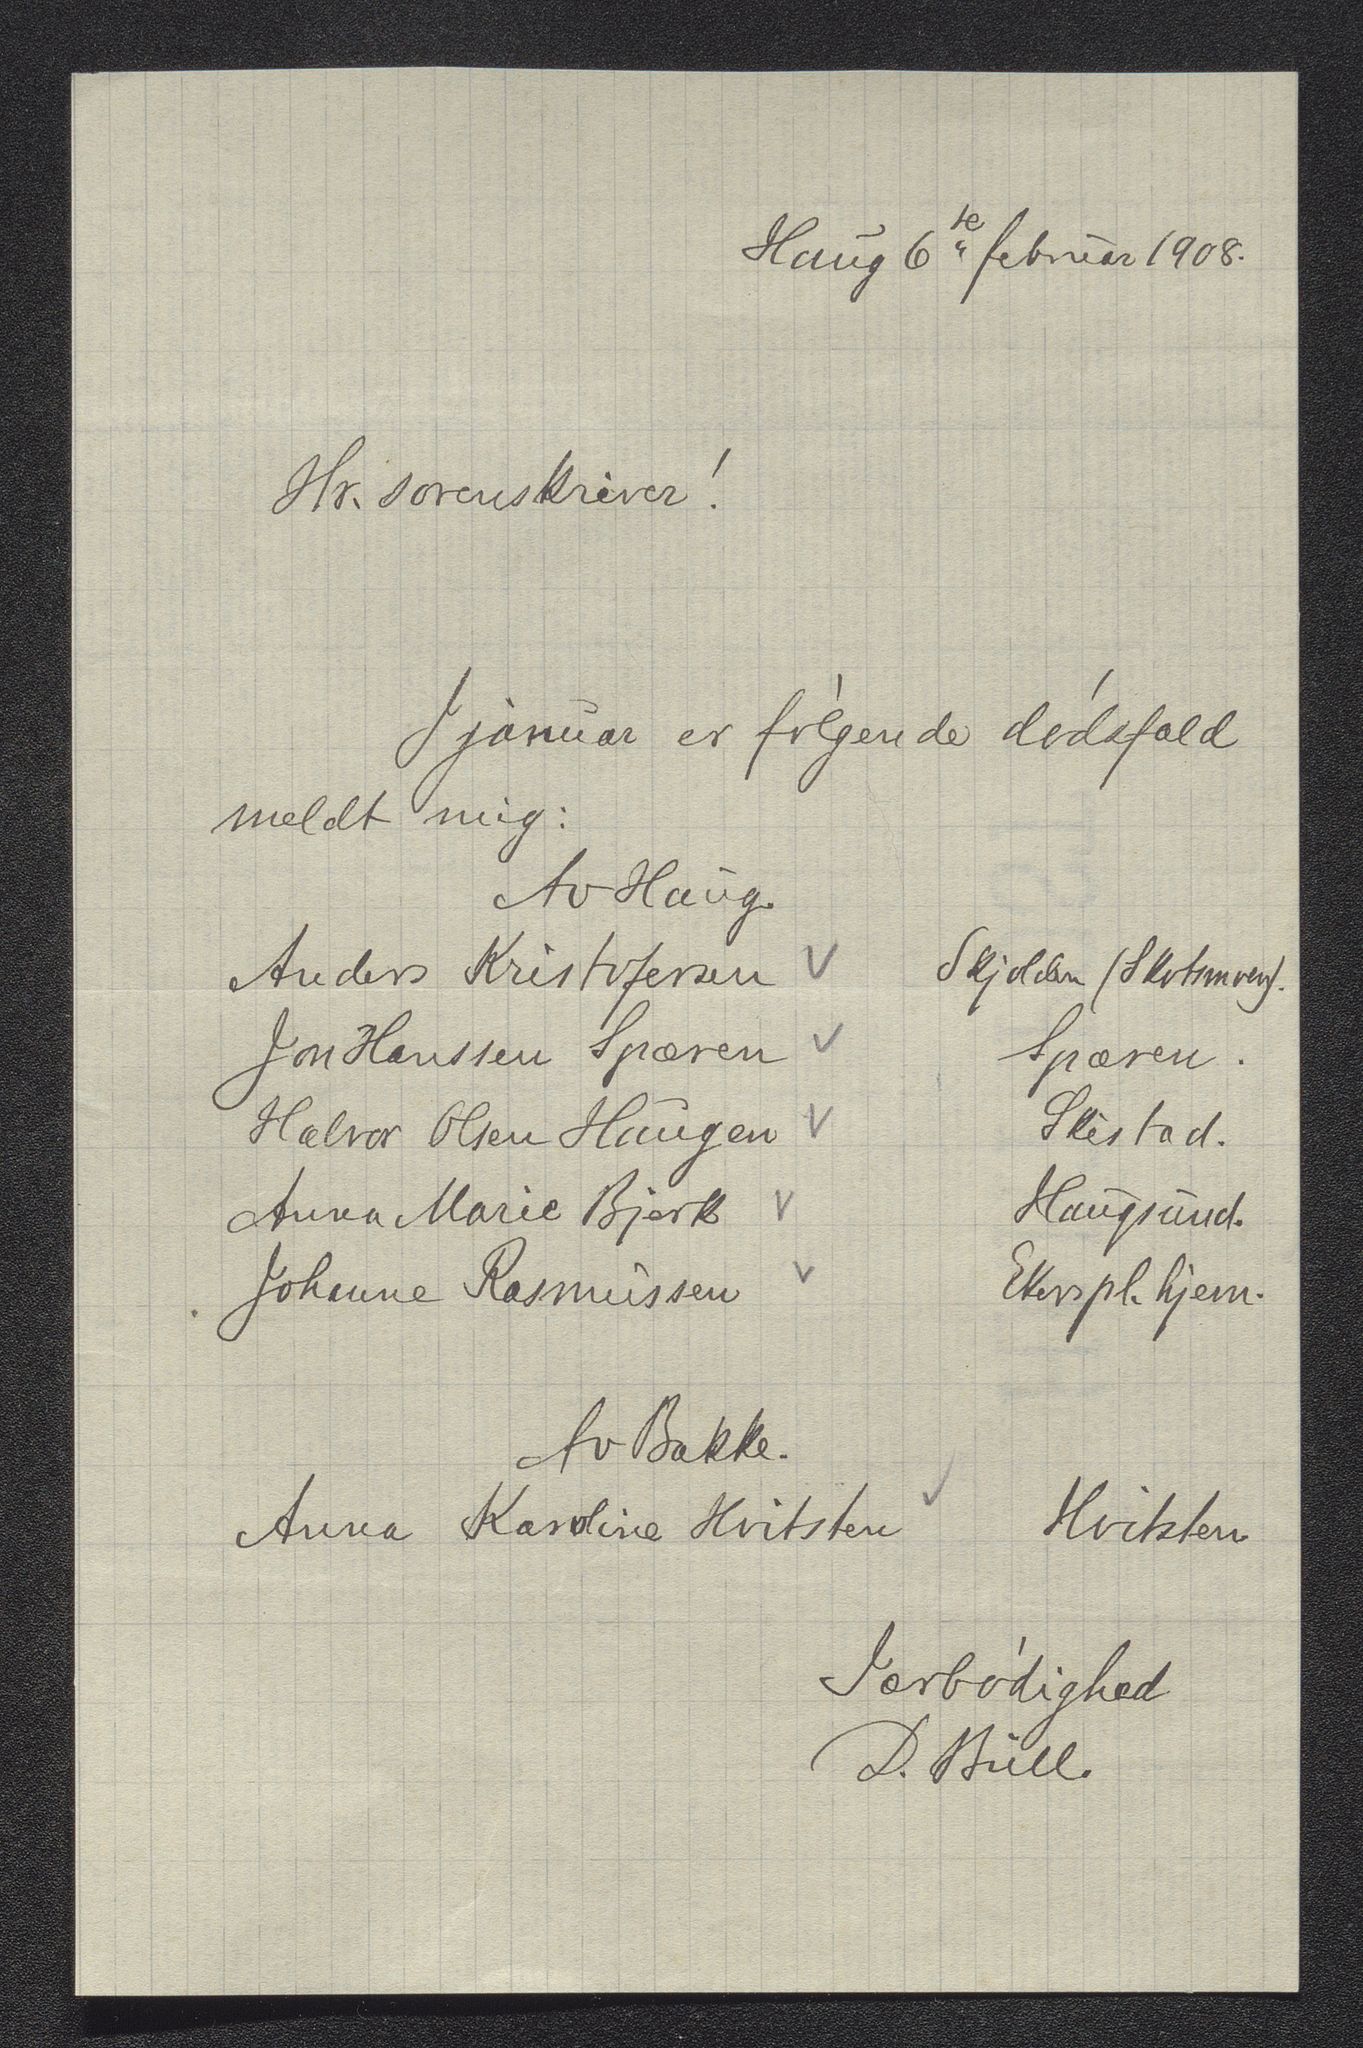 Haug 6te februar 1908.
Hr. sorenskriver!
I januar er følgende dødsfald
meldt mig:
Av Haug.
Anders Kristofersen V Skjolden (Skotsmoen).
Jon Hanssen Spæren V Spæren.
Halvor Olsen Haugen V Skistad.
Anna Marie Bjerk V Haugsund.
Johanne Rasmussen V Ekers pl. hjem.
Av Bakke.
Anna Karoline Hvitsten V Hvitsten
Iærbødighed
D. Bull.